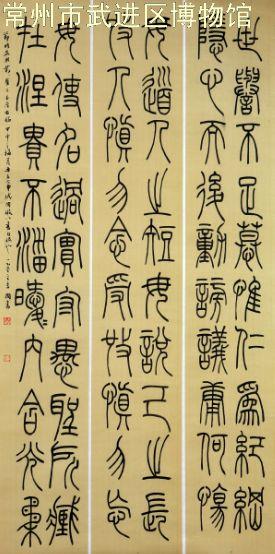 常州市武进区博物馆
世譽不足慕惟仁為紀綱
隱心而後動謗議庸何傷
毋道人之短毋說己之長
施人慎勿念受施慎勿忘
毋使名過實守愚聖所臧
在涅貴不淄曖內含光柔